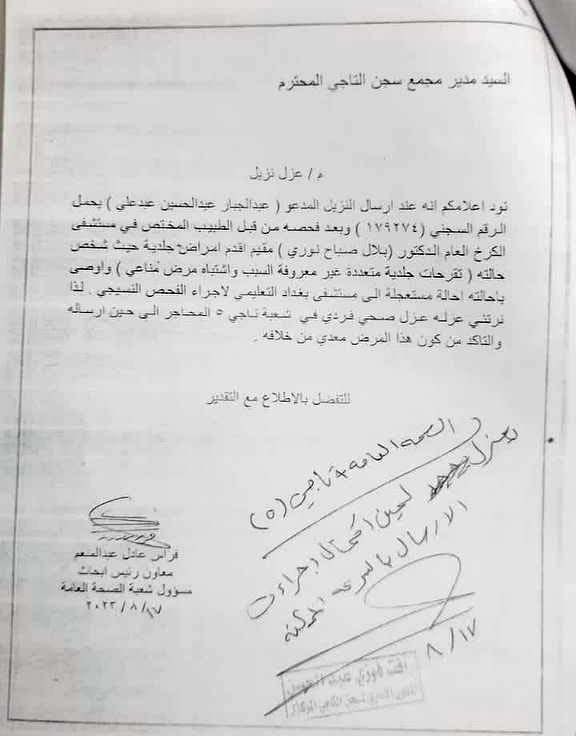 السيد مدير مجمع سجن التاجي المحترم
م / عزل نزيل
نود اعلامكم انه عند ارسال النزيل المدعو ( عبدالجبار عبدالحسين عبدعلي ) يحمل
الرقم السجني ( ١٧٩٢٧٤ ) وبعد فحصه من قبل الطبيب المختص في مستشفى
الكرخ العام الدكتور (بلال صباح نوري ) مقيم اقدم امراض جلدية حيث شخص
حالته ( تقرحات جلدية متعددة غير معروفة السبب واشتباه مرض مناعي ) واوصى
باحالته احالة مستعجلة الى مستشفى بغداد التعليمي لاجراء الفحص النسيجي . لذا
نرتئي عزله عزل صحي فردي في شعبة تاجي ٥ المحاجر الى حين ارساله
والتاكد من كون هذا المرض معدي من خلافه .
للتفضل بالاطلاع مع التقدير
الصحة العامة + تاجي (٥)
يعزل لحين اكمال اجراءات
الارسال بالسرعة الممكنة
٨/١٧
فراس عادل عبدالمنعم
معاون رئيس ابحاث
مسؤول شعبة الصحة العامة
٢٠٢٢/٨/١٧